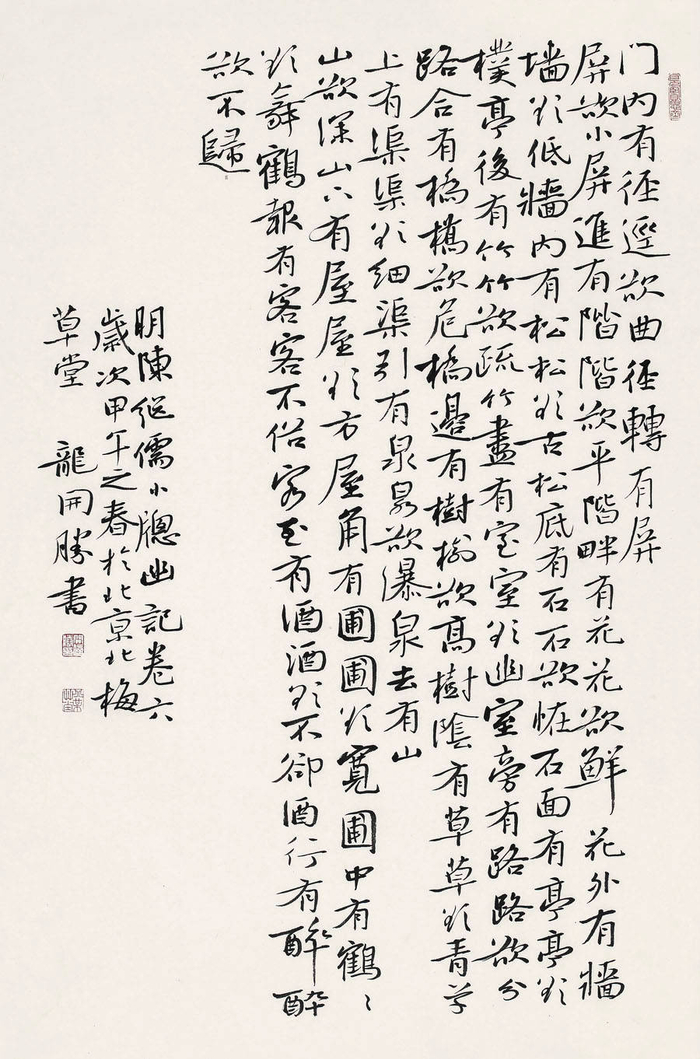 门内有径逕欲曲径轉有屏
屏欲小屏進有階階欲平階畔有花花欲鮮花外有牆
墙欲低牆内有松松欲古松底有石石欲怪石面有亭亭欲
樸亭後有竹竹欲疏竹盡有室室欲幽室旁有路路欲分
路合有橋橋欲危橋邊有樹樹欲高樹陰有草草欲青草
上有渠渠欲细渠引有泉泉欲瀑泉去有山
山欲深山下有屋屋欲方屋角有圃圃欲寬圃中有鶴〻
欲舞鶴報有客客不俗客至有酒酒欲不卻酒行有醉醉
欲不歸
明陳继儒小牕幽記卷六
歲次甲午之春於北京北梅
草堂 龍開勝書